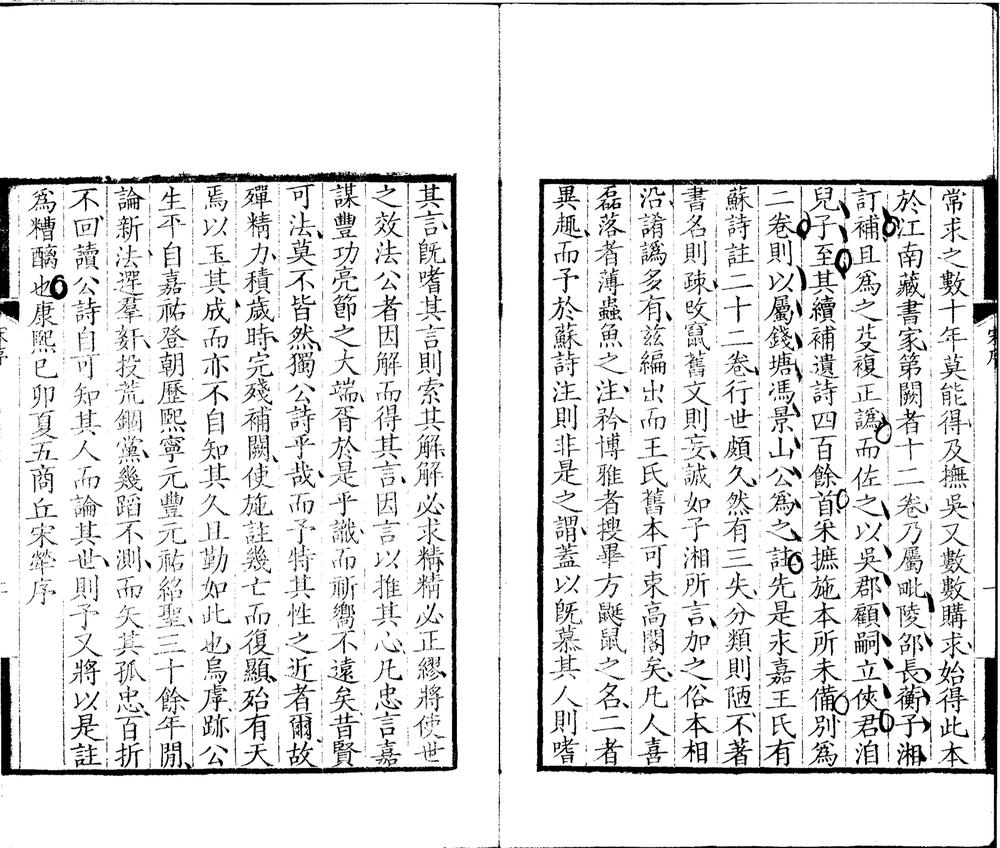 常求之數十年莫能得及撫吳又數數購求始得此本
於江南藏書家第闕者十二卷乃屬毗陵邵長蘅子湘
訂補且爲之芟複正譌而佐之以吳郡顧嗣立俠君洎
兒子至其續補遺詩四百餘首采摭施本所未備別爲
二卷則以屬錢塘馮景山公爲之註先是永嘉王氏有
蘇詩註二十二卷行世頗久然有三失分類則陋不著
書名則疎改竄舊文則妄誠如子湘所言加之俗本相
沿淆譌多有茲編出而王氏舊本可束高閣矣凡人喜
磊落者薄蟲魚之注矜博雅者搜畢方鼮鼠之名二者
異趣而予於蘇詩注則非是之謂蓋以旣慕其人則嗜
其言旣嗜其言則索其解解必求精精必正繆將使世
之效法公者因解而得其言因言以推其心凡忠言嘉
謀豐功亮節之大端胥於是乎識而嚮不遠矣昔賢
可法莫不皆然獨公詩乎哉而予特其性之近者爾故
殫精力積歲時完殘補闕使施註幾亡而復顯殆有天
焉以玉其成而亦不自知其久且勤如此也烏虖跡公
生平自嘉祐登朝歷熙寧元豐元祐紹聖三十餘年閒
論新法逆羣姦投荒錮黨幾蹈不測而矢其孤忠百折
不回讀公詩自可知其人而論其世則予又將以是註
爲糟醨也康熙己卯夏五商丘宋犖序
宋序